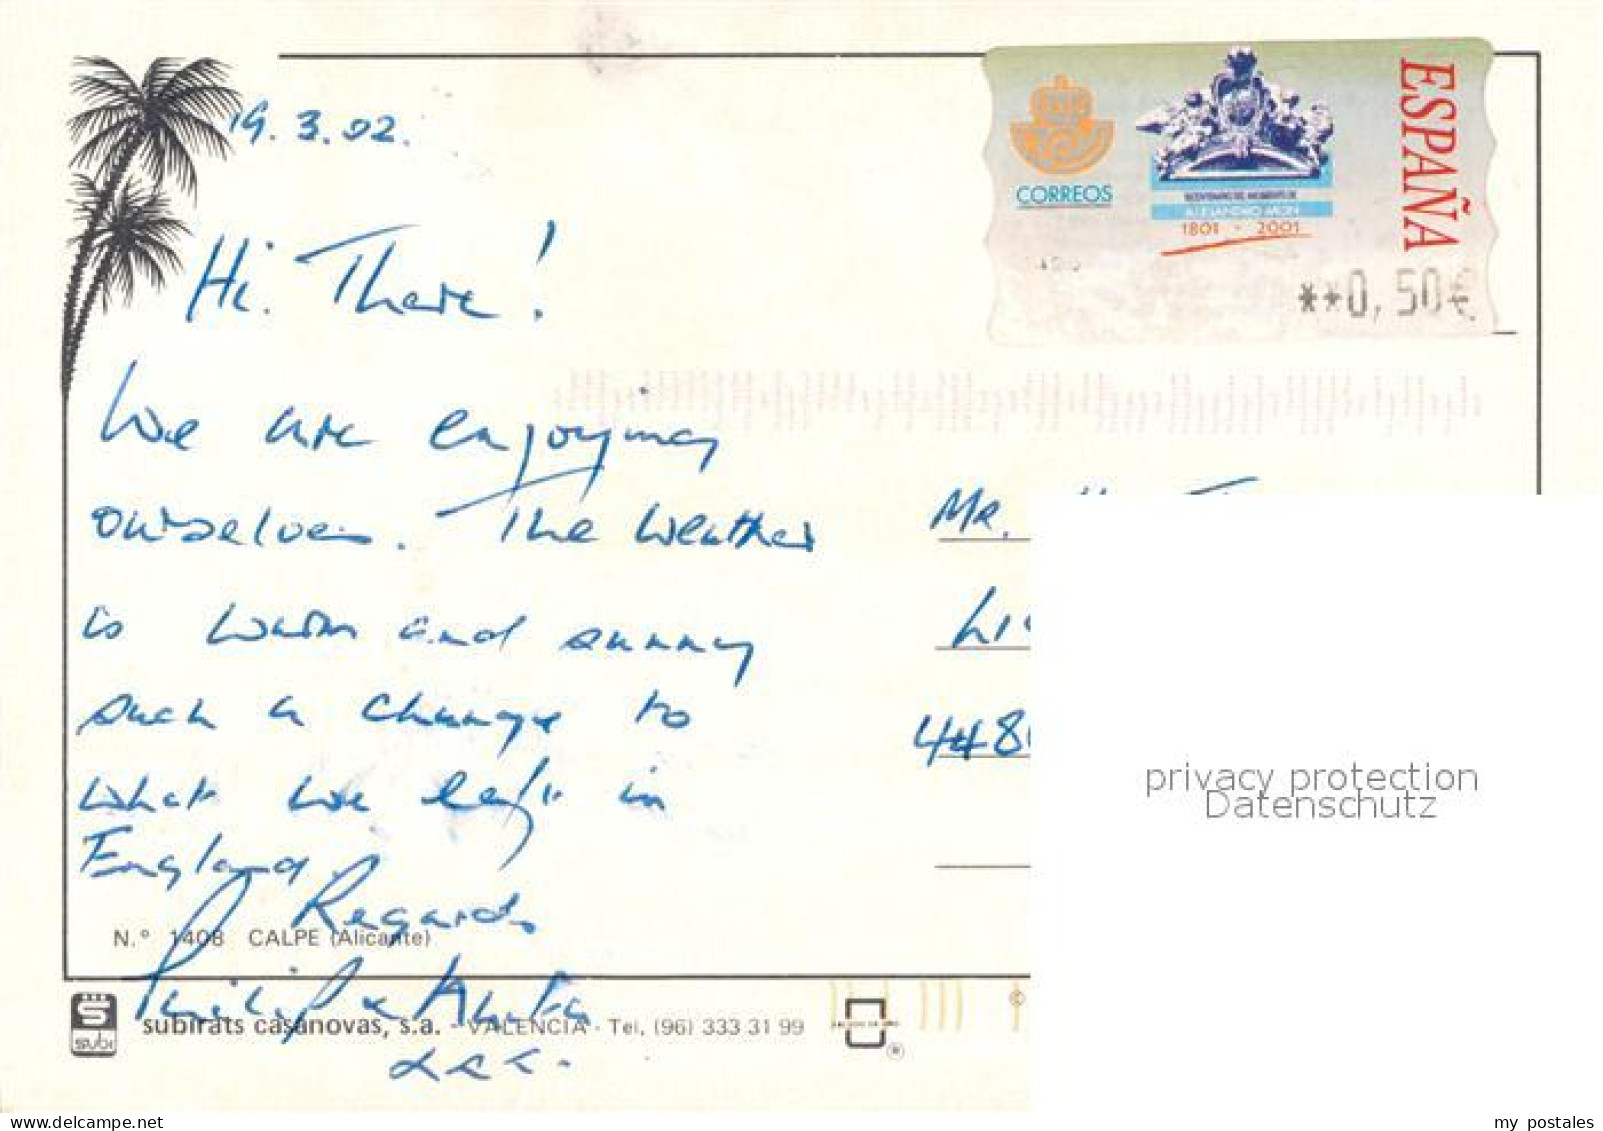 19.3.02.
CORREOS
BICENTENARIO DEL NACIMIENTO DE
ALEJANDRO MON
1801 - 2001
ESPAÑA
**0,50€
Hi. There!
We are enjoying
ourselves. The weather
is warm and sunny
such a change to
what we left in
England.
Regards
Philip & Anita
xxx.
MR.
448
N.° 1408 CALPE (Alicante)
subi
subirats casanovas, s.a. - VALENCIA - Tel. (96) 333 31 99
®
©
privacy protection
Datenschutz
delcampe.net
my postales